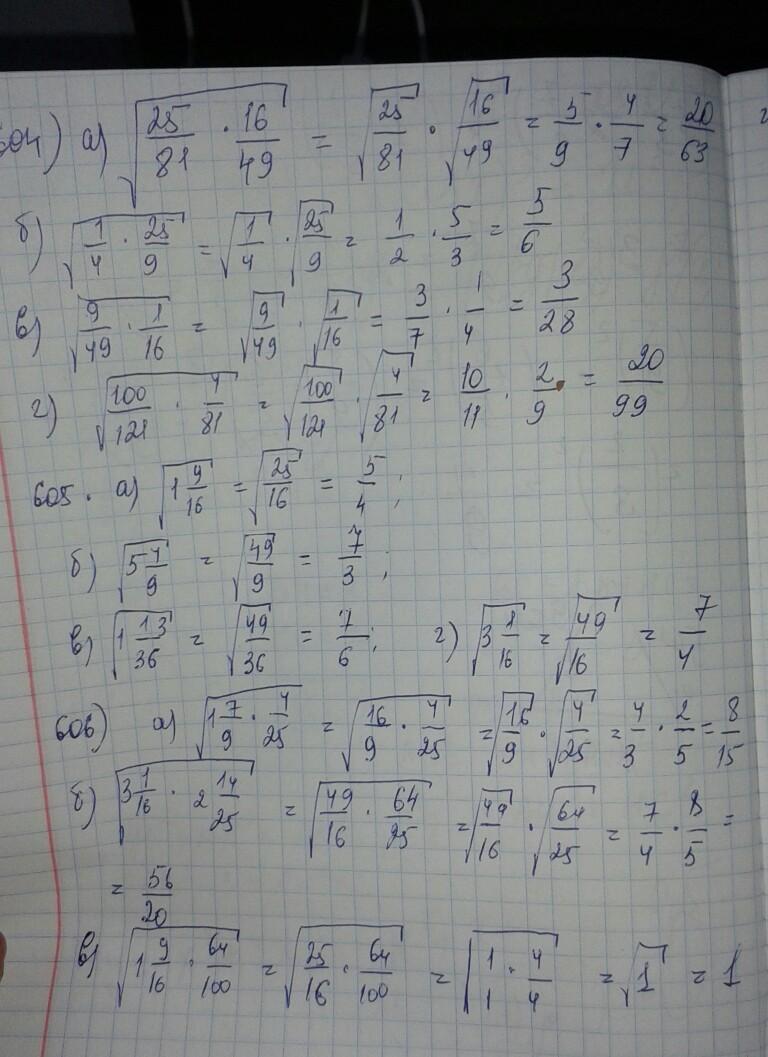 604) а) √(25/81 · 16/49) = √(25/81) · √(16/49) = 5/9 · 4/7 = 20/63
б) √(1/4 · 25/9) = √(1/4) · √(25/9) = 1/2 · 5/3 = 5/6
в) √(9/49 · 1/16) = √(9/49) · √(1/16) = 3/7 · 1/4 = 3/28
г) √(100/121 · 4/81) = √(100/121) · √(4/81) = 10/11 · 2/9 = 20/99
605. а) √(1 9/16) = √(25/16) = 5/4;
б) √(5 4/9) = √(49/9) = 7/3;
в) √(1 13/36) = √(49/36) = 7/6; г) √(3 1/16) = √(49/16) = 7/4
606) а) √(1 7/9 · 4/25) = √(16/9 · 4/25) = √(16/9) · √(4/25) = 4/3 · 2/5 = 8/15
б) √(3 1/16 · 2 14/25) = √(49/16 · 64/25) = √(49/16) · √(64/25) = 7/4 · 8/5 =
= 56/20
в) √(1 9/16 · 64/100) = √(25/16 · 64/100) = √(1/1 · 4/4) = √1 = 1